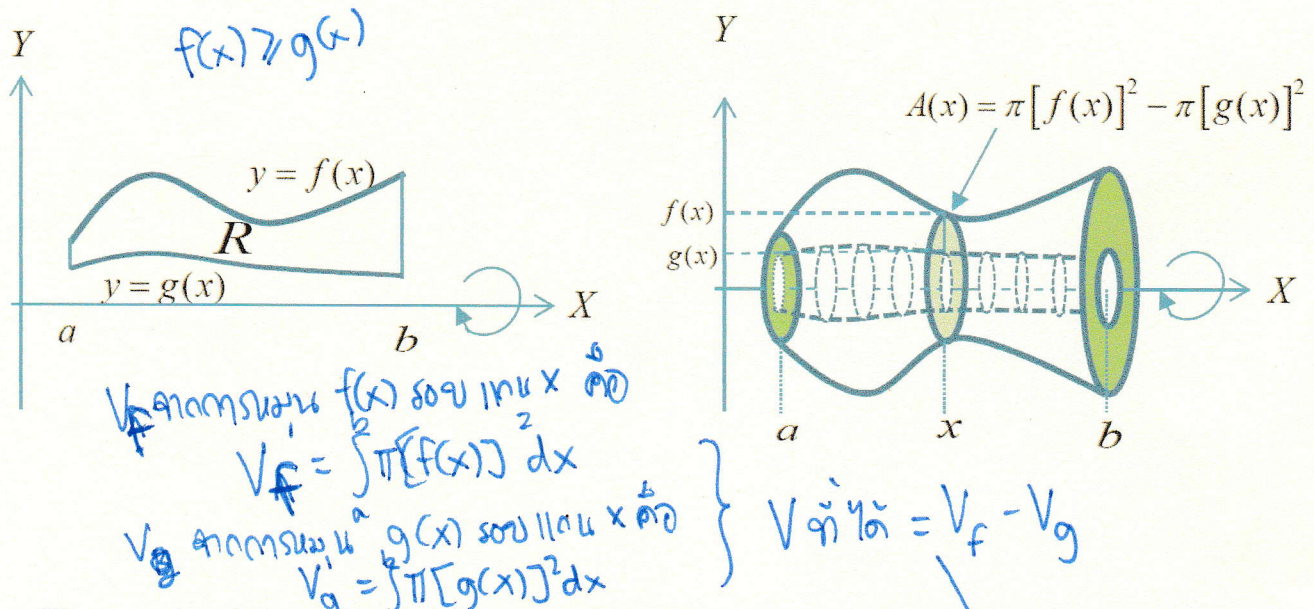 f(x) ≥ g(x)
Y
y = f(x)
R
y = g(x)
X
a
b
Y
A(x) = π[f(x)]² − π[g(x)]²
f(x)
g(x)
X
a
x
b
V_f จากการหมุน f(x) รอบแกน x คือ
V_f = ∫_a^b π[f(x)]² dx
V_g จากการหมุน g(x) รอบแกน x คือ
V_g = ∫_a^b π[g(x)]² dx
V ที่ได้ = V_f - V_g